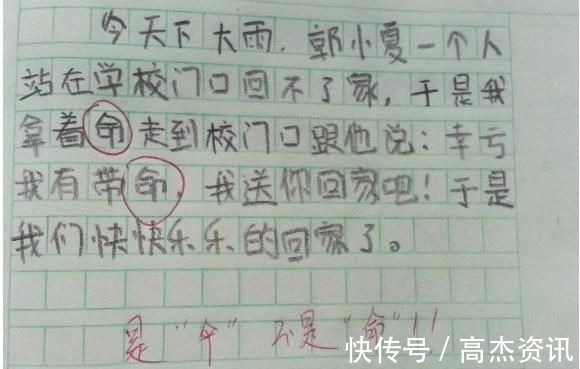 今天下大雨，郭小夏一个人
站在学校门口回不了家，于是我
拿着命走到校门口跟他说：幸亏
我有带命，我送你回家吧！于是
我们快快乐乐的回家了。
是“伞”不是“命”！！
快传号 / 高杰资讯